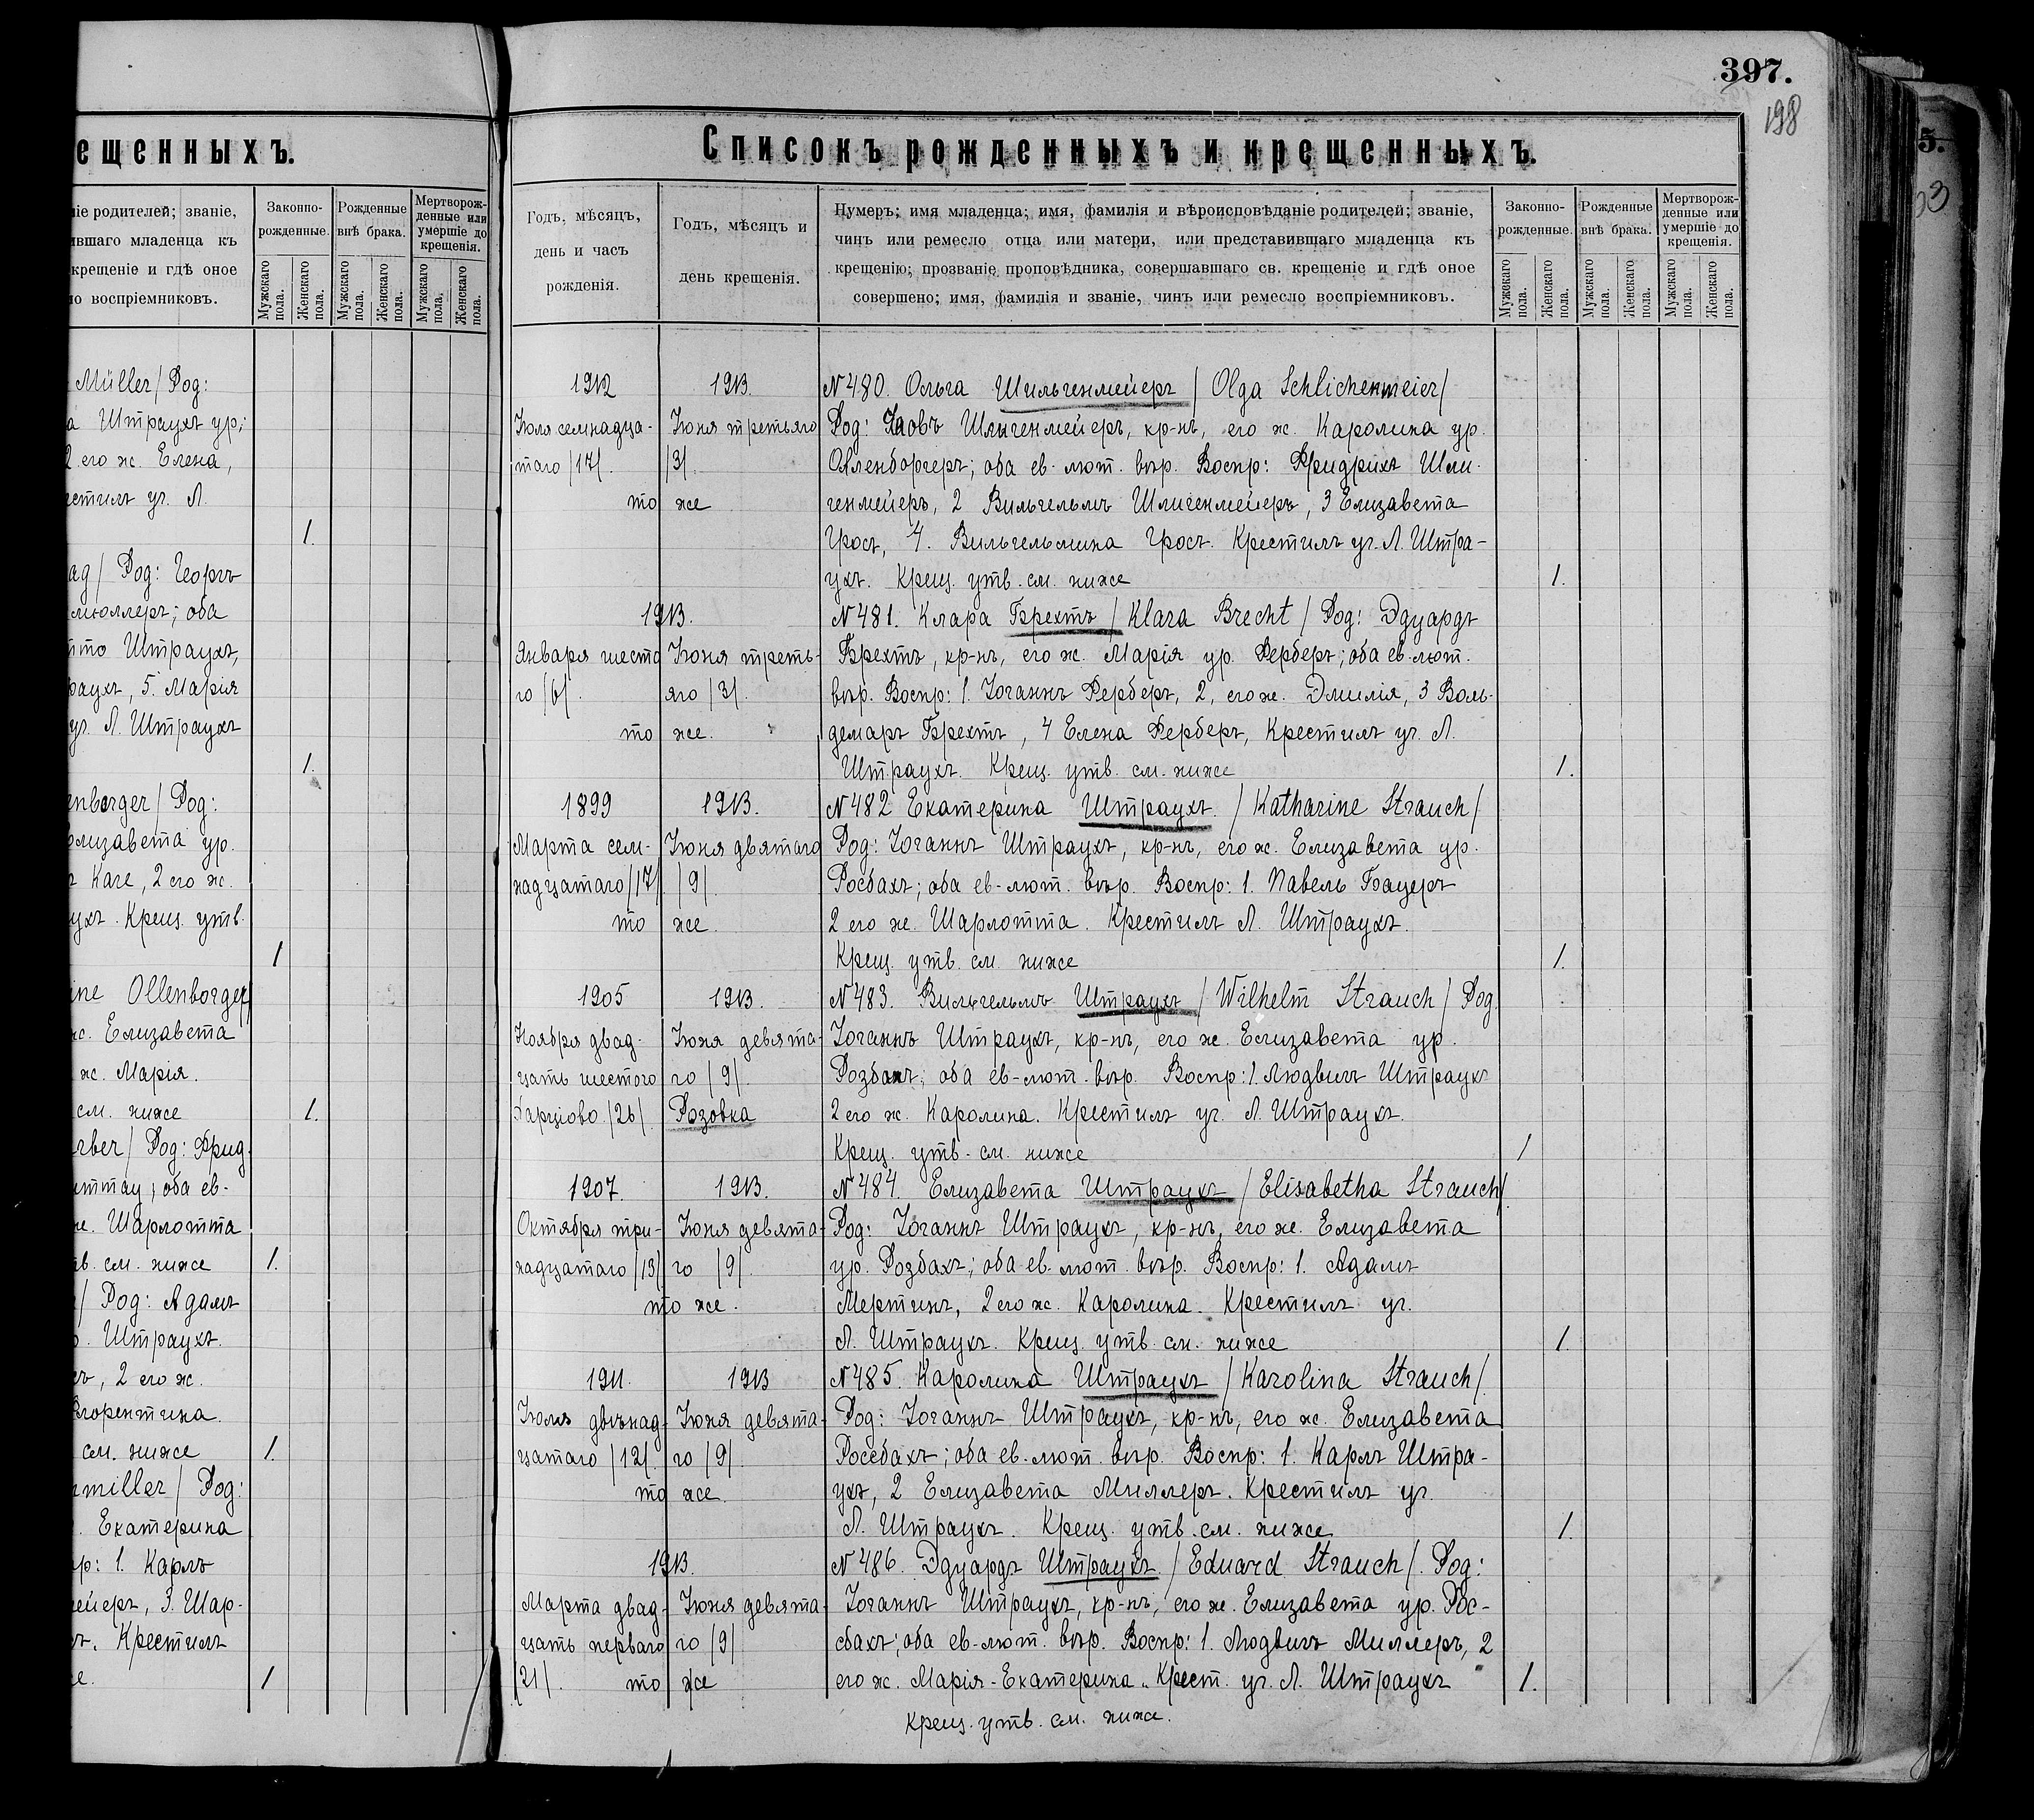 397.
198
5.
ещенныхъ.
ніе родителей; званіе,
ившаго младенца къ
крещеніе и гдѣ оное
ло воспріемниковъ.
Законно-
рожденные.
Рожденные
внѣ брака.
Мертворож-
денные или
умершіе до
крещенія.
Мужскаго пола.
Женскаго пола.
Мужскаго пола.
Женскаго пола.
Мужскаго пола.
Женскаго пола.
Müller / Род:
а Штраухъ ур.
2 его ж. Елена,
рестилъ уч. Л.
1.
ад / Род: Георгъ
мюллеръ; оба
тто Штраухъ,
раухъ, 5. Марія
уч. Л. Штраухъ
1.
enberger / Род:
лизавета ур.
ъ Каге, 2 его ж.
ухъ. Крещ. утв.
1
ine Ollenborger/
ж. Елизавета
ж. Марія.
см. ниже
1.
rber / Род: Фрид.
иттау; оба ев-
ж. Шарлотта
тв. см. ниже
1.
/ Род: Адамъ
р. Штраухъ.
ъ, 2 его ж.
Флорентина.
см. ниже
1.
miller / Род:
. Екатерина
пр: 1. Карлъ
мейеръ, 3. Шар-
ъ. Крестилъ
е.
1
Списокъ рожденныхъ и крещенныхъ.
Годъ, мѣсяцъ,
день и часъ
рожденія.
Годъ, мѣсяцъ и
день крещенія.
Нумеръ; имя младенца; имя, фамилія и вѣроисповѣданіе родителей; званіе,
чинъ или ремесло отца или матери, или представившаго младенца къ
крещенію; прозваніе проповѣдника, совершавшаго св. крещеніе и гдѣ оное
совершено; имя, фамилія и званіе, чинъ или ремесло воспріемниковъ.
Законно-
рожденные.
Рожденные
внѣ брака.
Мертворож-
денные или
умершіе до
крещенія.
Мужскаго пола.
Женскаго пола.
Мужскаго пола.
Женскаго пола.
Мужскаго пола.
Женскаго пола.
1912 1913. №480. Ольга Шильгенмейеръ / Olga Schlichenmeier/
Іюля семнадца- Іюня третьяго Род: Яковъ Шлигенмейеръ, кр-нъ, его ж. Каролина ур.
таго /17/. /3/. Олленборгеръ; оба ев. лют. вѣр. Воспр: Фридрихъ Шли-
то же генмейеръ, 2 Вильгельмъ Шлигенмейеръ, 3 Елизавета
Гросъ, 4. Вильгельмина Гросъ. Крестилъ уч. Л. Штра-
ухъ. Крещ. утв. см. ниже 1.
1913. №481. Клара Брехтъ / Klara Brecht / Род: Эдуардъ
Января шеста Іюня треть- Брехтъ, кр-нъ, его ж. Марія ур. Ферберъ; оба ев. лют.
го /6/. яго /3/. вѣр. Воспр: 1. Іоганнъ Ферберъ, 2, его ж. Эмилія, 3 Воль-
то же. демаръ Брехтъ, 4 Елена Ферберъ, Крестилъ уч. Л.
Штраухъ. Крещ. утв. см. ниже 1.
1899 1913. №482 Екатерина Штраухъ. / Katharine Strauch/
Марта сем- Іюня двятаго Род: Іоганнъ Штраухъ, кр-нъ, его ж. Елизавета ур.
надцатаго /17/ /9/. Росбахъ; оба ев-лют. вѣр. Воспр: 1. Павелъ Бауеръ
то же. 2 его ж. Шарлотта. Крестилъ Л. Штраухъ.
Крещ. утв. см. ниже 1.
1905 1913. №483. Вильгельмъ Штраухъ / Wilhelm Strauch / Род.
Ноября двад- Іюня девята- Іоганнъ Штраухъ, кр-нъ, его ж. Елизавета ур.
цать шестого го /9/. Розбахъ; оба ев-лют. вѣр. Воспр: 1. Людвигъ Штраухъ
/26/. Розовка 2 его ж. Каролина. Крестилъ уч. Л. Штраухъ.
Крещ. утв. см. ниже 1
1907. 1913. №484. Елизавета Штраухъ / Elisabetha Strauch/
Октября три- Іюня девята- Род: Іоганнъ Штраухъ, кр-нъ, его ж. Елизавета
надцатаго /13/ го /9/. ур. Розбахъ; оба ев. лют. вѣр. Воспр: 1. Адамъ
то же. Мертинъ, 2 его ж. Каролина. Крестилъ уч.
Л. Штраухъ. Крещ. утв. см. ниже 1.
1911. 1913 №485. Каролина Штраухъ / Karolina Strauch/.
Іюля двѣнад- Іюня девята- Род: Іоганнъ Штраухъ, кр-нъ, его ж. Елизавета
цатаго /12/. го /9/. Росебахъ; оба ев. лют. вѣр. Воспр: 1. Карлъ Штра-
то же. ухъ, 2 Елизавета Миллеръ. Крестилъ уч.
Л. Штраухъ. Крещ. утв. см. ниже 1.
1913. №486. Эдуардъ Штраухъ / Eduard Strauch /. Род:
Марта двад- Іюня девята- Іоганнъ Штраухъ, кр-нъ, его ж. Елизавета ур. Рос-
цать перваго го /9/ сбахъ; оба ев-лют. вѣр. Воспр: 1. Людвигъ Миллеръ, 2
/21/. то же его ж. Марія-Екатерина. Крест. уч. Л. Штраухъ 1.
Крещ. утв. см. ниже.